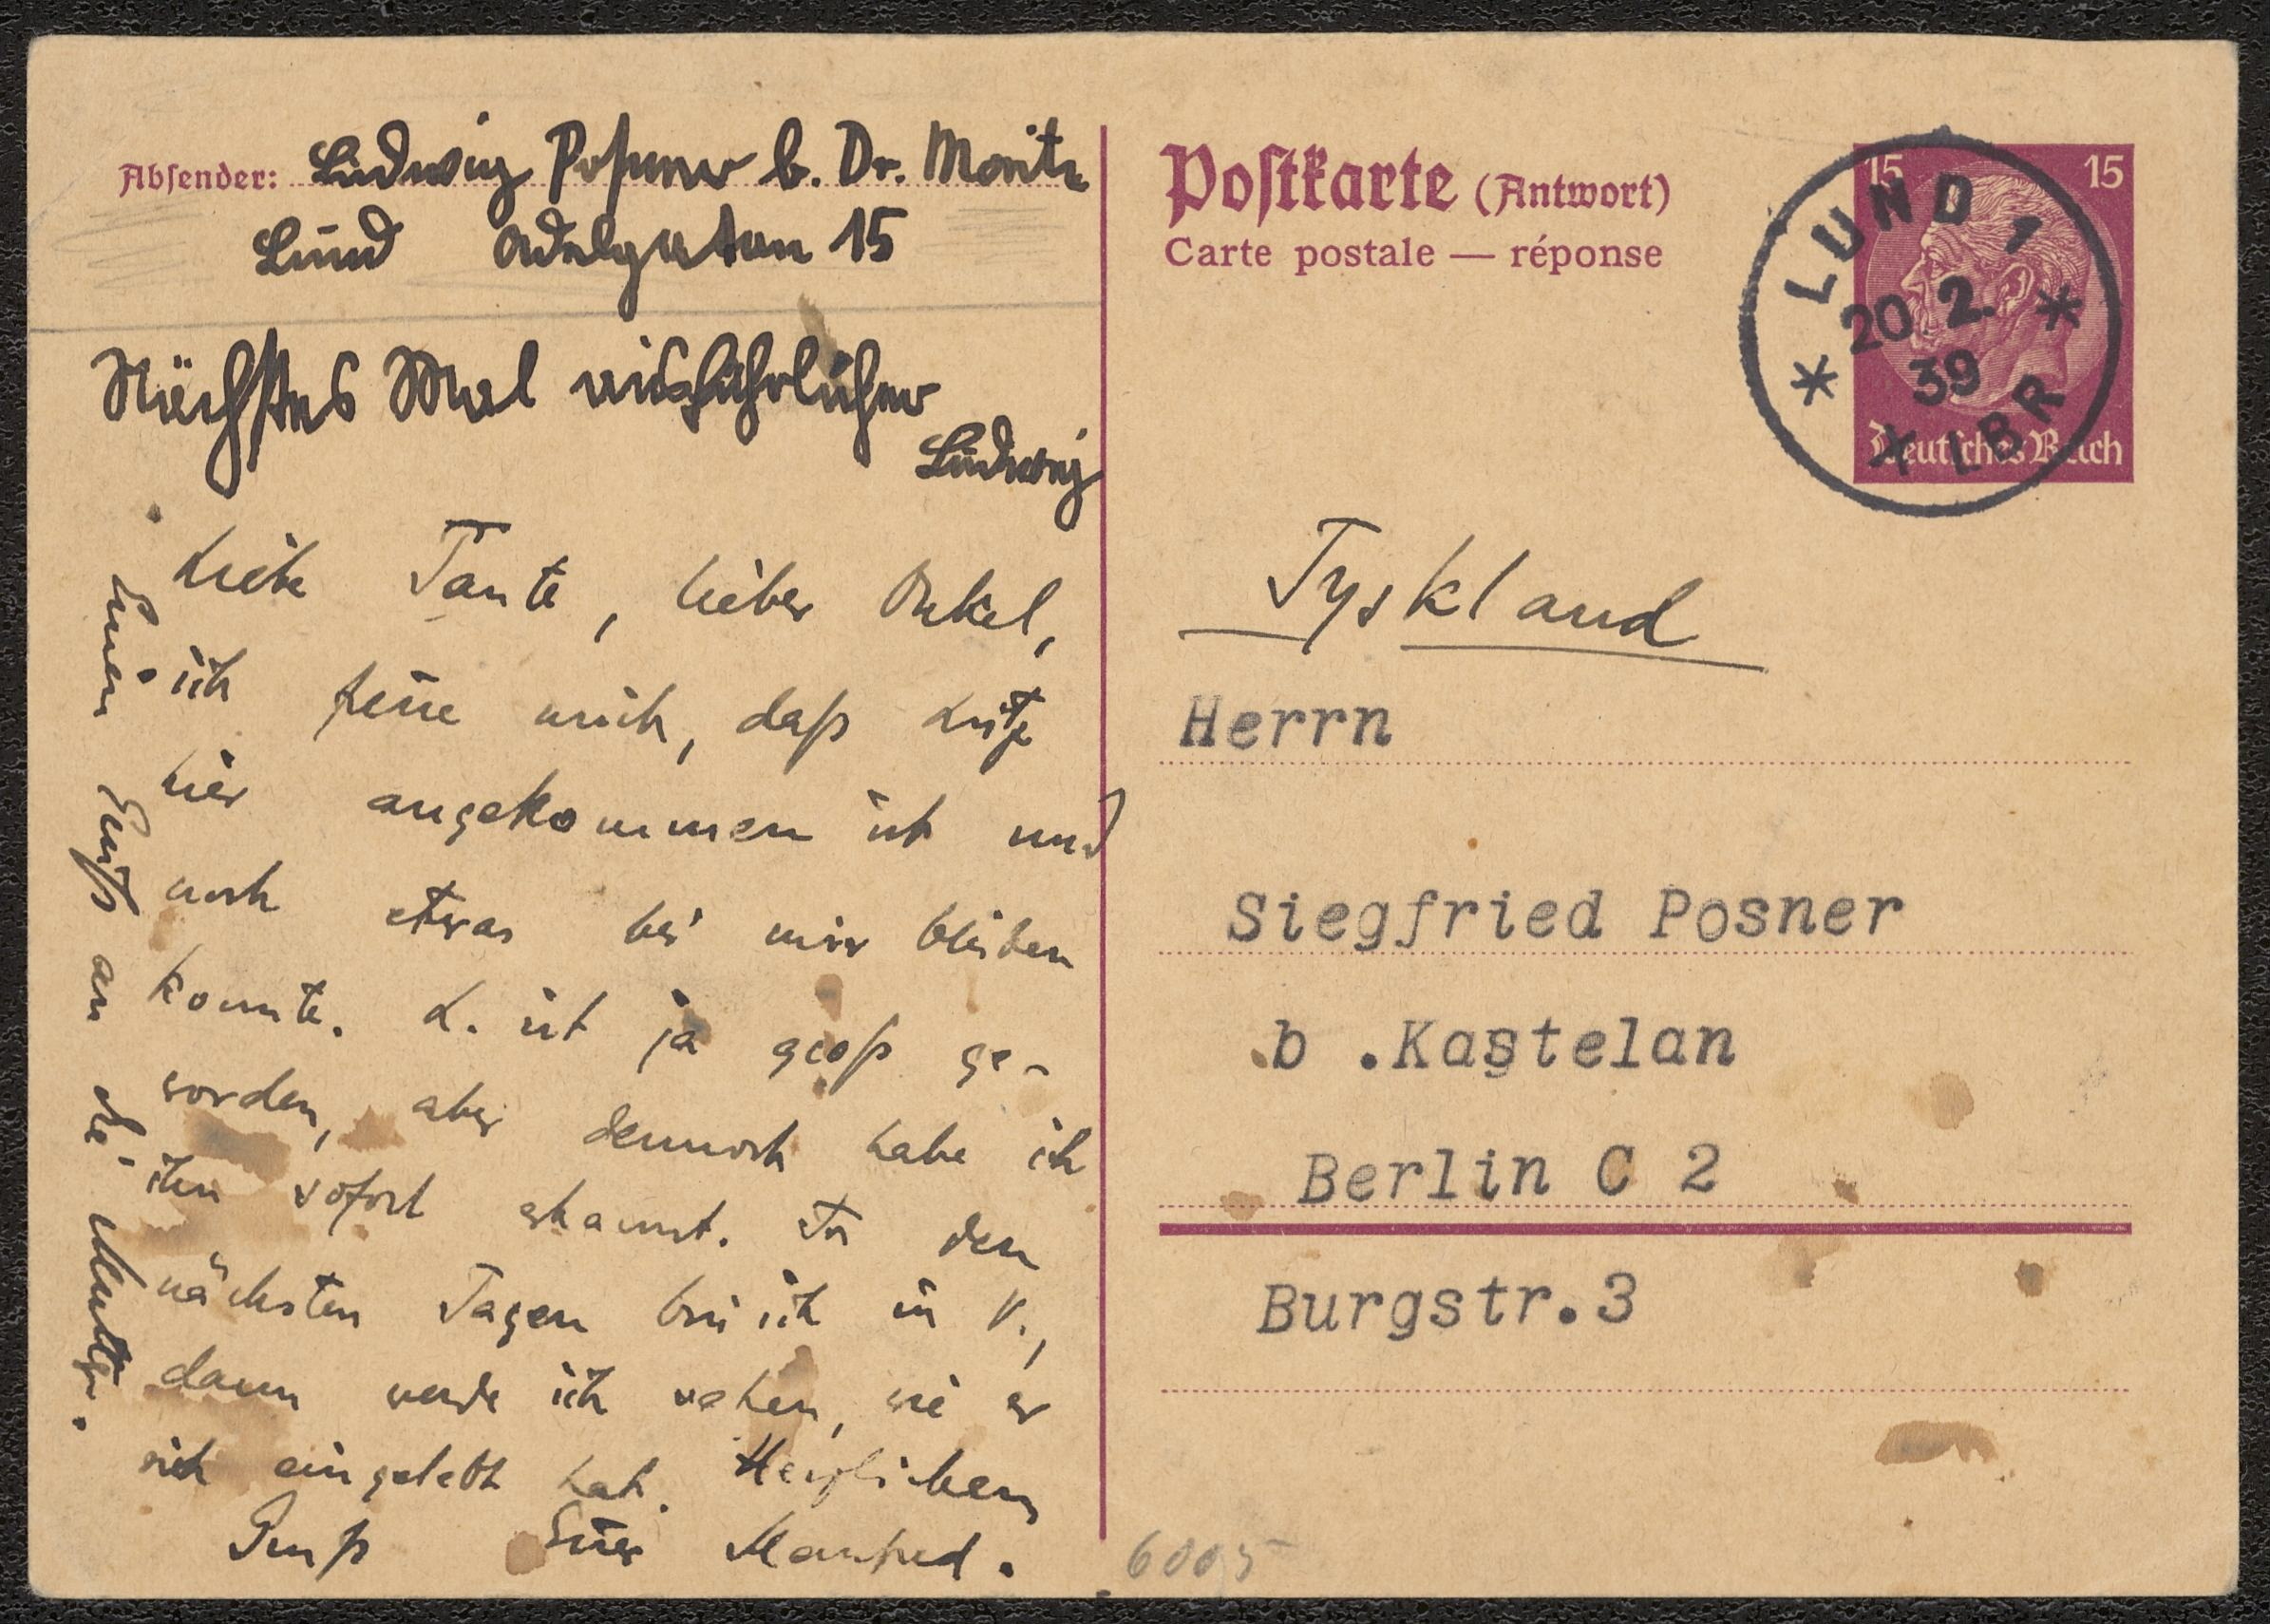 Absender: Ludwig Posner b. Dr. Moritz
Lund Adelgatan 15
Nächstes Mal ausführlicher
Ludwig
Liebe Tante, lieber Onkel,
ich freue mich, daß Lutz
hier angekommen ist und
noch etwas bei mir bleiben
konnte. L. ist ja groß ge-
worden, aber dennoch habe ich
ihn sofort erkannt. In den
nächsten Tagen bin ich in V.,
dann werde ich sehen, wie er
sich eingelebt hat. Herzlichen
Gruß Euer Manfred.
Einen Gruß an die Mutter.
Postkarte (Antwort)
Carte postale — réponse
15 15
Deutsches Reich
LUND 1
20 2.
39
LBR
Tyskland
Herrn
Siegfried Posner
b .Kastelan
Berlin C 2
Burgstr.3
6005